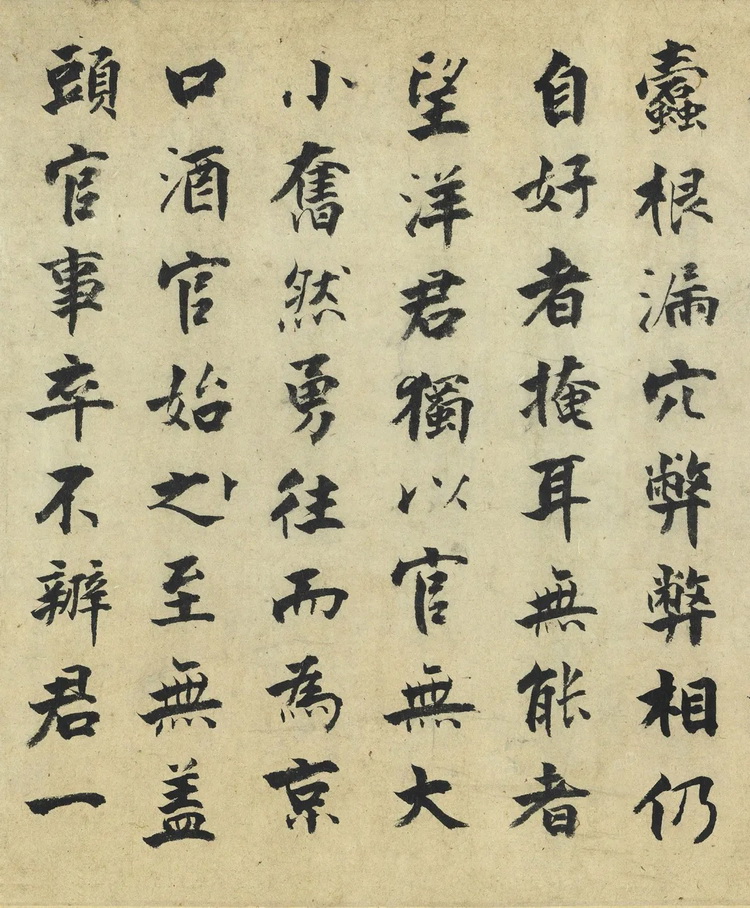 蠹根漏穴弊弊相仍
自好者掩耳無能者
望洋君獨以官無大
小奮然勇往而為京
口酒官始之至無盖
頭官事卒不辦君一